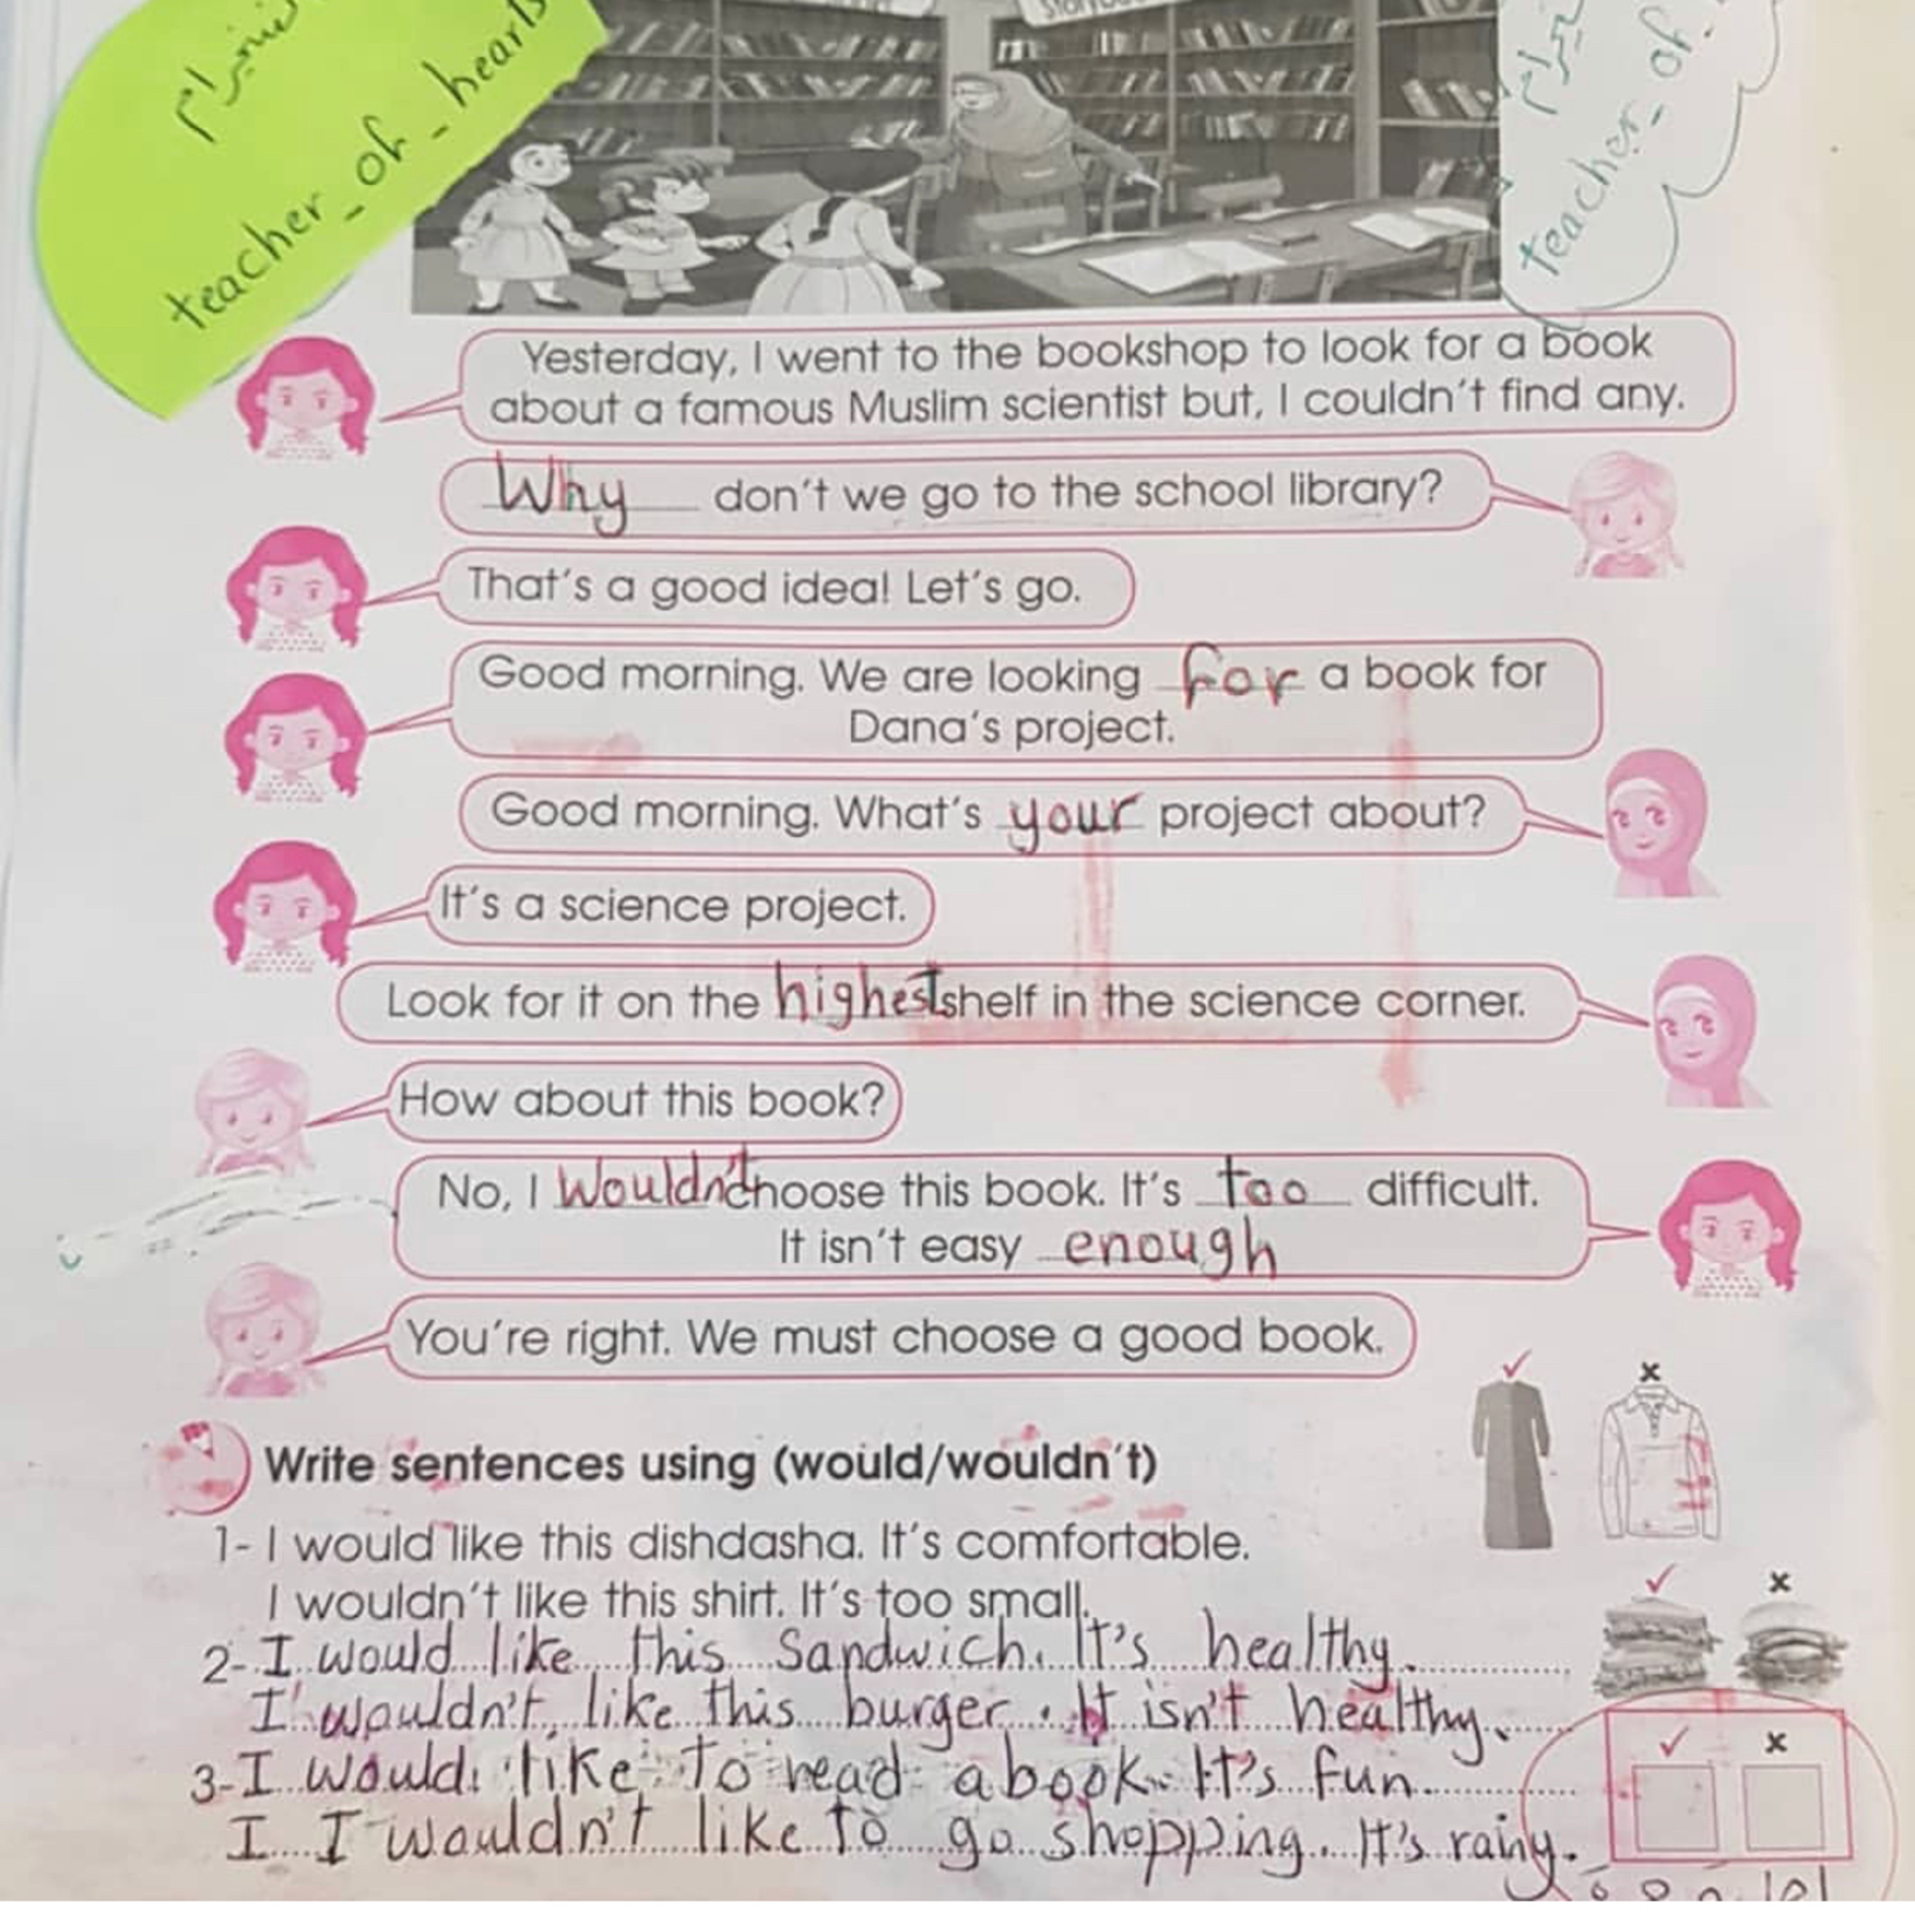 teacher_of_hearts
teacher_of_
Yesterday, I went to the bookshop to look for a book
about a famous Muslim scientist but, I couldn't find any.
Why don't we go to the school library?
That's a good idea! Let's go.
Good morning. We are looking for a book for
Dana's project.
Good morning. What's your project about?
It's a science project.
Look for it on the highest shelf in the science corner.
How about this book?
No, I wouldn't choose this book. It's too difficult.
It isn't easy enough
You're right. We must choose a good book.
Write sentences using (would/wouldn't)
1- I would like this dishdasha. It's comfortable.
I wouldn't like this shirt. It's too small.
2- I would like this sandwich. It's healthy.
I wouldn't like this burger. It isn't healthy.
3- I would like to read a book. It's fun.
I I wouldn't like to go shopping. It's rainy.